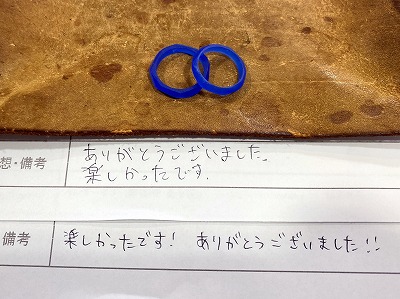 想・備考
ありがとうございました。
楽しかったです.
備考
楽しかったです! ありがとうございました!!